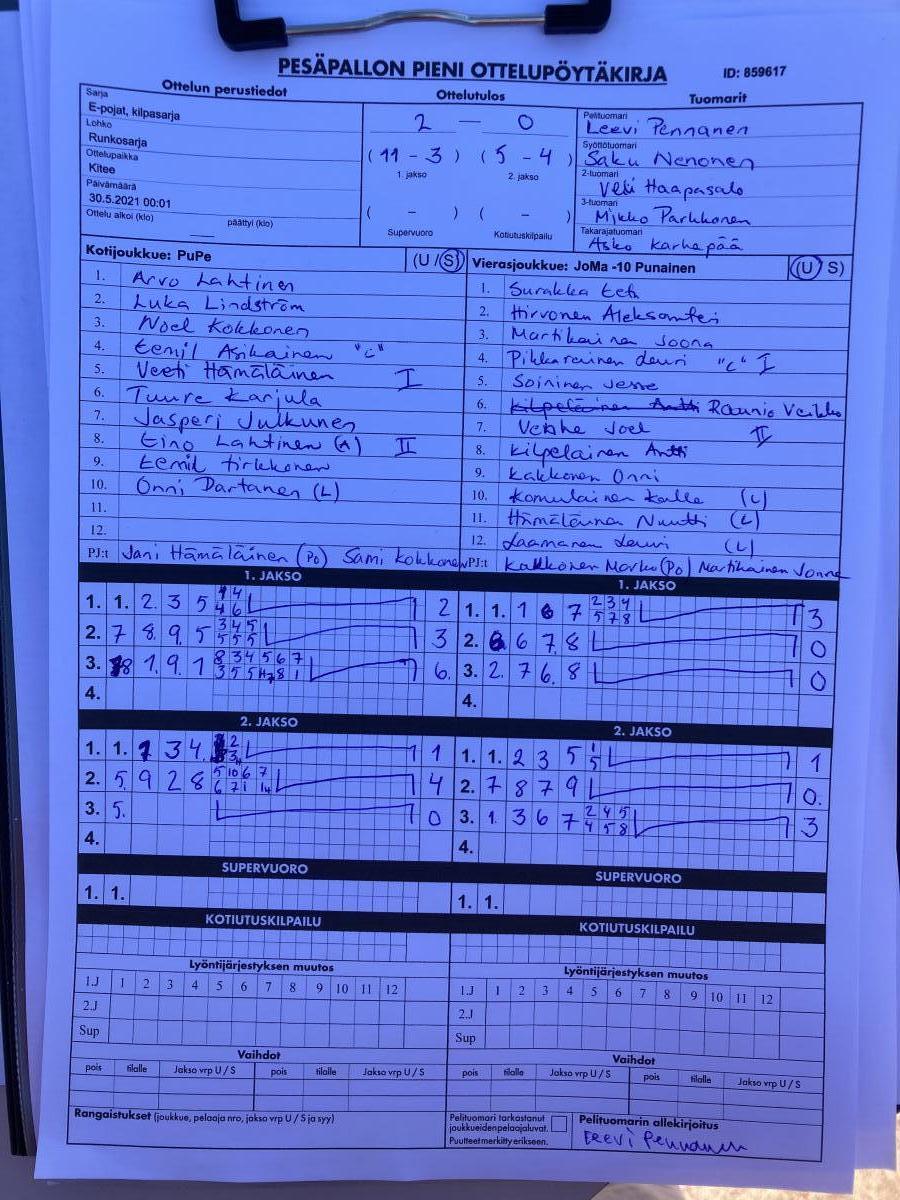 PESÄPALLON PIENI OTTELUPÖYTÄKIRJA
ID: 859617
Ottelun perustiedot
Sarja
E-pojat, kilpasarja
Lohko
Runkosarja
Ottelupaikka
Kitee
Päivämäärä
30.5.2021 00:01
Ottelu alkoi (klo) päättyi (klo)
Ottelutulos
2 — 0
(11 - 3) (5 - 4)
1. jakso 2. jakso
( - ) ( - )
Supervuoro Kotiutuskilpailu
Tuomarit
Pelituomari
Leevi Pennanen
Syöttötuomari
Saku Nenonen
2-tuomari
Veli Haapasalo
3-tuomari
Mikko Parkkonen
Takarajatuomari
Asko Karhapää
Kotijoukkue: PuPe (U / S)
1. Arvo Lahtinen
2. Luka Lindström
3. Noel Kokkonen
4. Eemil Asikainen "C"
5. Veeti Hämäläinen I
6. Tuure Karjula
7. Jasperi Julkunen
8. Eino Lahtinen (A) II
9. Eemil Tirkkonen
10. Onni Partanen (L)
11.
12.
PJ:t Jani Hämäläinen (Po) Sami Kokkonen
Vierasjoukkue: JoMa -10 Punainen (U / S)
1. Surakka Eeti
2. Hirvonen Aleksanteri
3. Martikainen Joona
4. Pikkarainen Leuri "C" I
5. Soininen Jesse
6. Kilpeläinen Antti Raunio Veikko
7. Joel II
8. Kilpeläinen Antti
9. Kakkonen Onni
10. Komulainen Kalle (L)
11. Hämäläinen Nuutti (L)
12. Laamanen Leuri (L)
PJ:t Kakkonen Marko (Po) Martikainen Jonne
1. JAKSO
1. 1. 2. 3 5 2
2. 7 8. 9. 5 3 4 5 5 5 5 3
3. 8 1. 9. 1 8 3 4 5 6 7 6.
4.
1. JAKSO
1. 1. 1 6 7 2 3 4 5 7 8 3
2. 6 6 7. 8 0
3. 2. 7 6. 8 0
4.
2. JAKSO
1. 1. 7 3 4. 1
2. 5. 9 2 8 5 10 6 7 6 7 1 4
3. 5. 0
4.
2. JAKSO
1. 1. 2 3 5 1 5 1
2. 7 8 7 9 0.
3. 1. 3 6 7 2 4 5 4 5 8 3
4.
SUPERVUORO
1. 1.
SUPERVUORO
1. 1.
KOTIUTUSKILPAILU
KOTIUTUSKILPAILU
Lyöntijärjestyksen muutos
1.J 1 2 3 4 5 6 7 8 9 10 11 12
2.J
Sup
Lyöntijärjestyksen muutos
1.J 1 2 3 4 5 6 7 8 9 10 11 12
2.J
Sup
Vaihdot
pois tilalle Jakso vrp U / S pois tilalle Jakso vrp U / S
Vaihdot
pois tilalle Jakso vrp U / S pois tilalle Jakso vrp U / S
Rangaistukset (joukkue, pelaaja nro, jakso vrp U / S ja syy)
Pelituomari tarkastanut
joukkueiden pelaajaluvat.
Puutteet merkitty erikseen.
Pelituomarin allekirjoitus
Leevi Pennanen